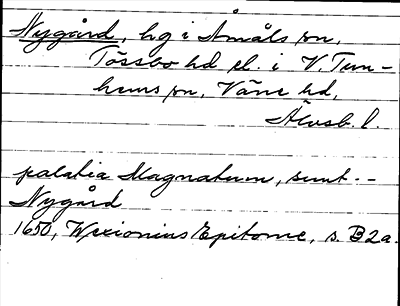 Nygård, hg i Åmåls sn,
Tössbo hd el. i V. Tun-
hems sn, Väne hd,
Älvsb. l.
palatia Magnatum, sunt. -
Nygård
1650, Wexionius Epitome, s. B2a.